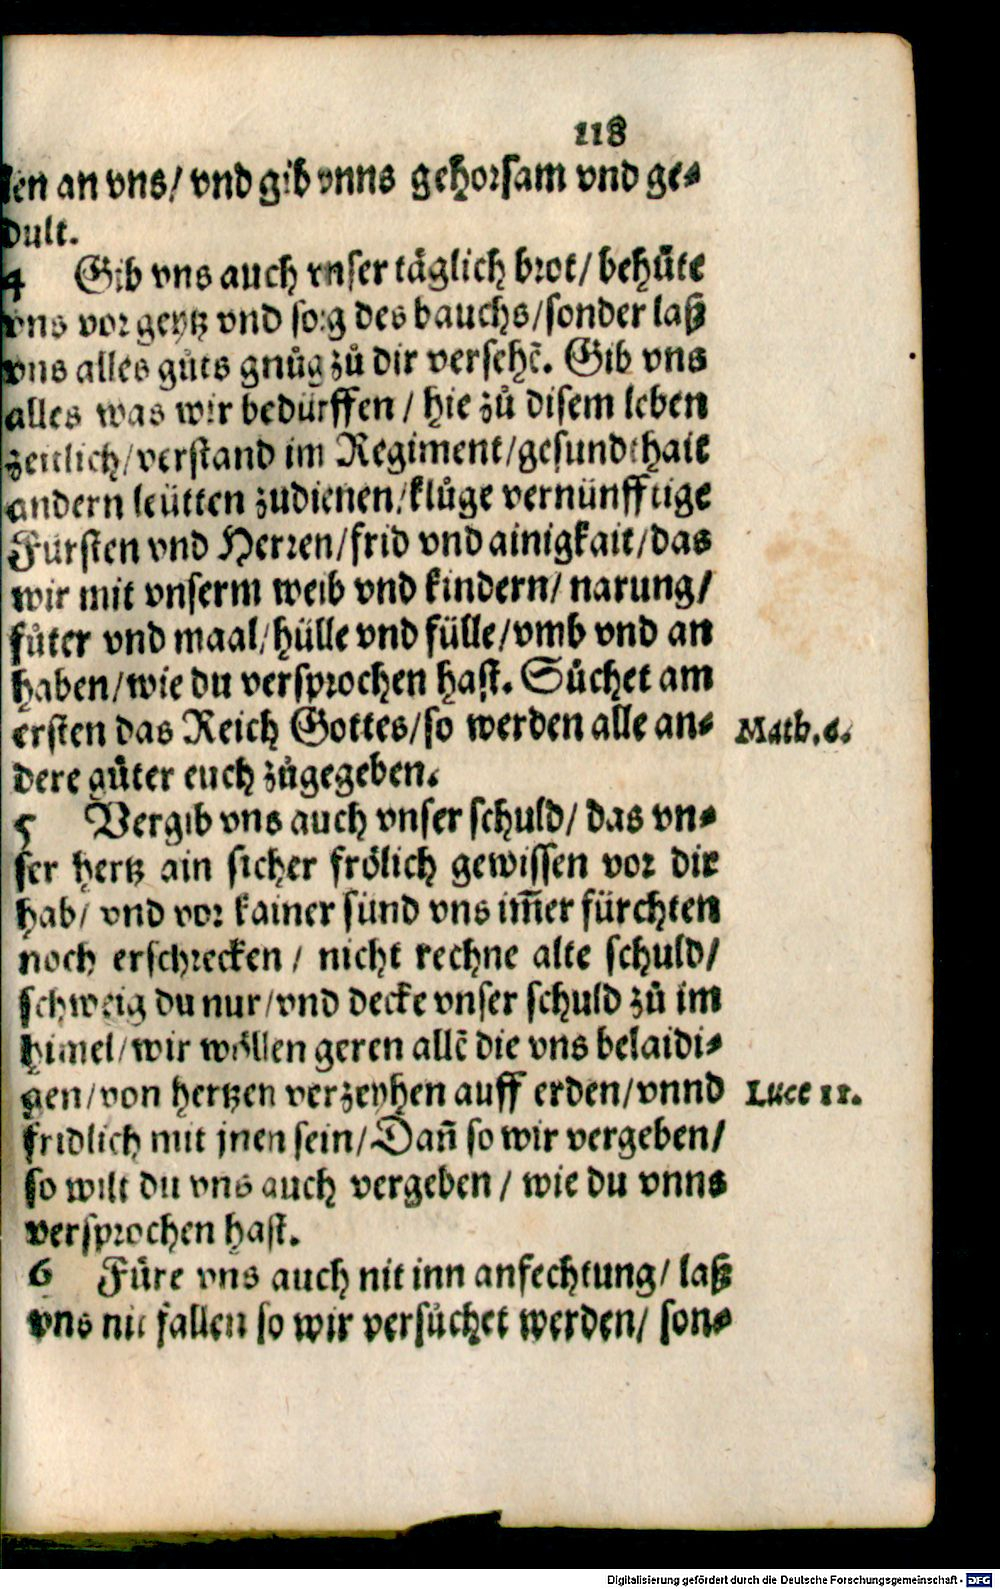 118
len an vns/ vnd gib vnns gehorsam vnd ge⸗
dult.
4 Gib vns auch vnser täglich brot/ behuͤte
vns vor geytz vnd sorg des bauchs/sonder laß
vns alles guͦts gnuͦg zuͦ dir versehē. Gib vns
alles was wir bedürffen / hie zuͦ disem leben
zeitlich/verstand im Regiment/gesundthait
andern leütten zudienen/kluͦge vernünfftige
Fürsten vnd Herren/frid vnd ainigkait/das
wir mit vnserm weib vnd kindern/ narung/
fuͦter vnd maal/hülle vnd fülle/vmb vnd an
haben/wie du versprochen hast. Suͦchet am
ersten das Reich Gottes/so werden alle an⸗
Math.6.
dere guͤter euch zuͦgegeben.
5 Vergib vns auch vnser schuld/ das vn⸗
ser hertz ain sicher frölich gewissen vor dir
hab/ vnd vor kainer sünd vns im̄er fürchten
noch erschrecken / nicht rechne alte schuld/
schweig du nur/vnd decke vnser schuld zuͦ im
himel/wir wöllen geren allē die vns belaidi⸗
gen/von hertzen verzeyhen auff erden/vnnd
Luce 11.
fridlich mit jnen sein/Dañ so wir vergeben/
so wilt du vns auch vergeben / wie du vnns
versprochen hast.
6 Fuͤre vns auch nit inn anfechtung/ laß
vns nit fallen so wir versuͦchet werden/ son⸗
Digitalisierung gefördert durch die Deutsche Forschungsgemeinschaft - DFG